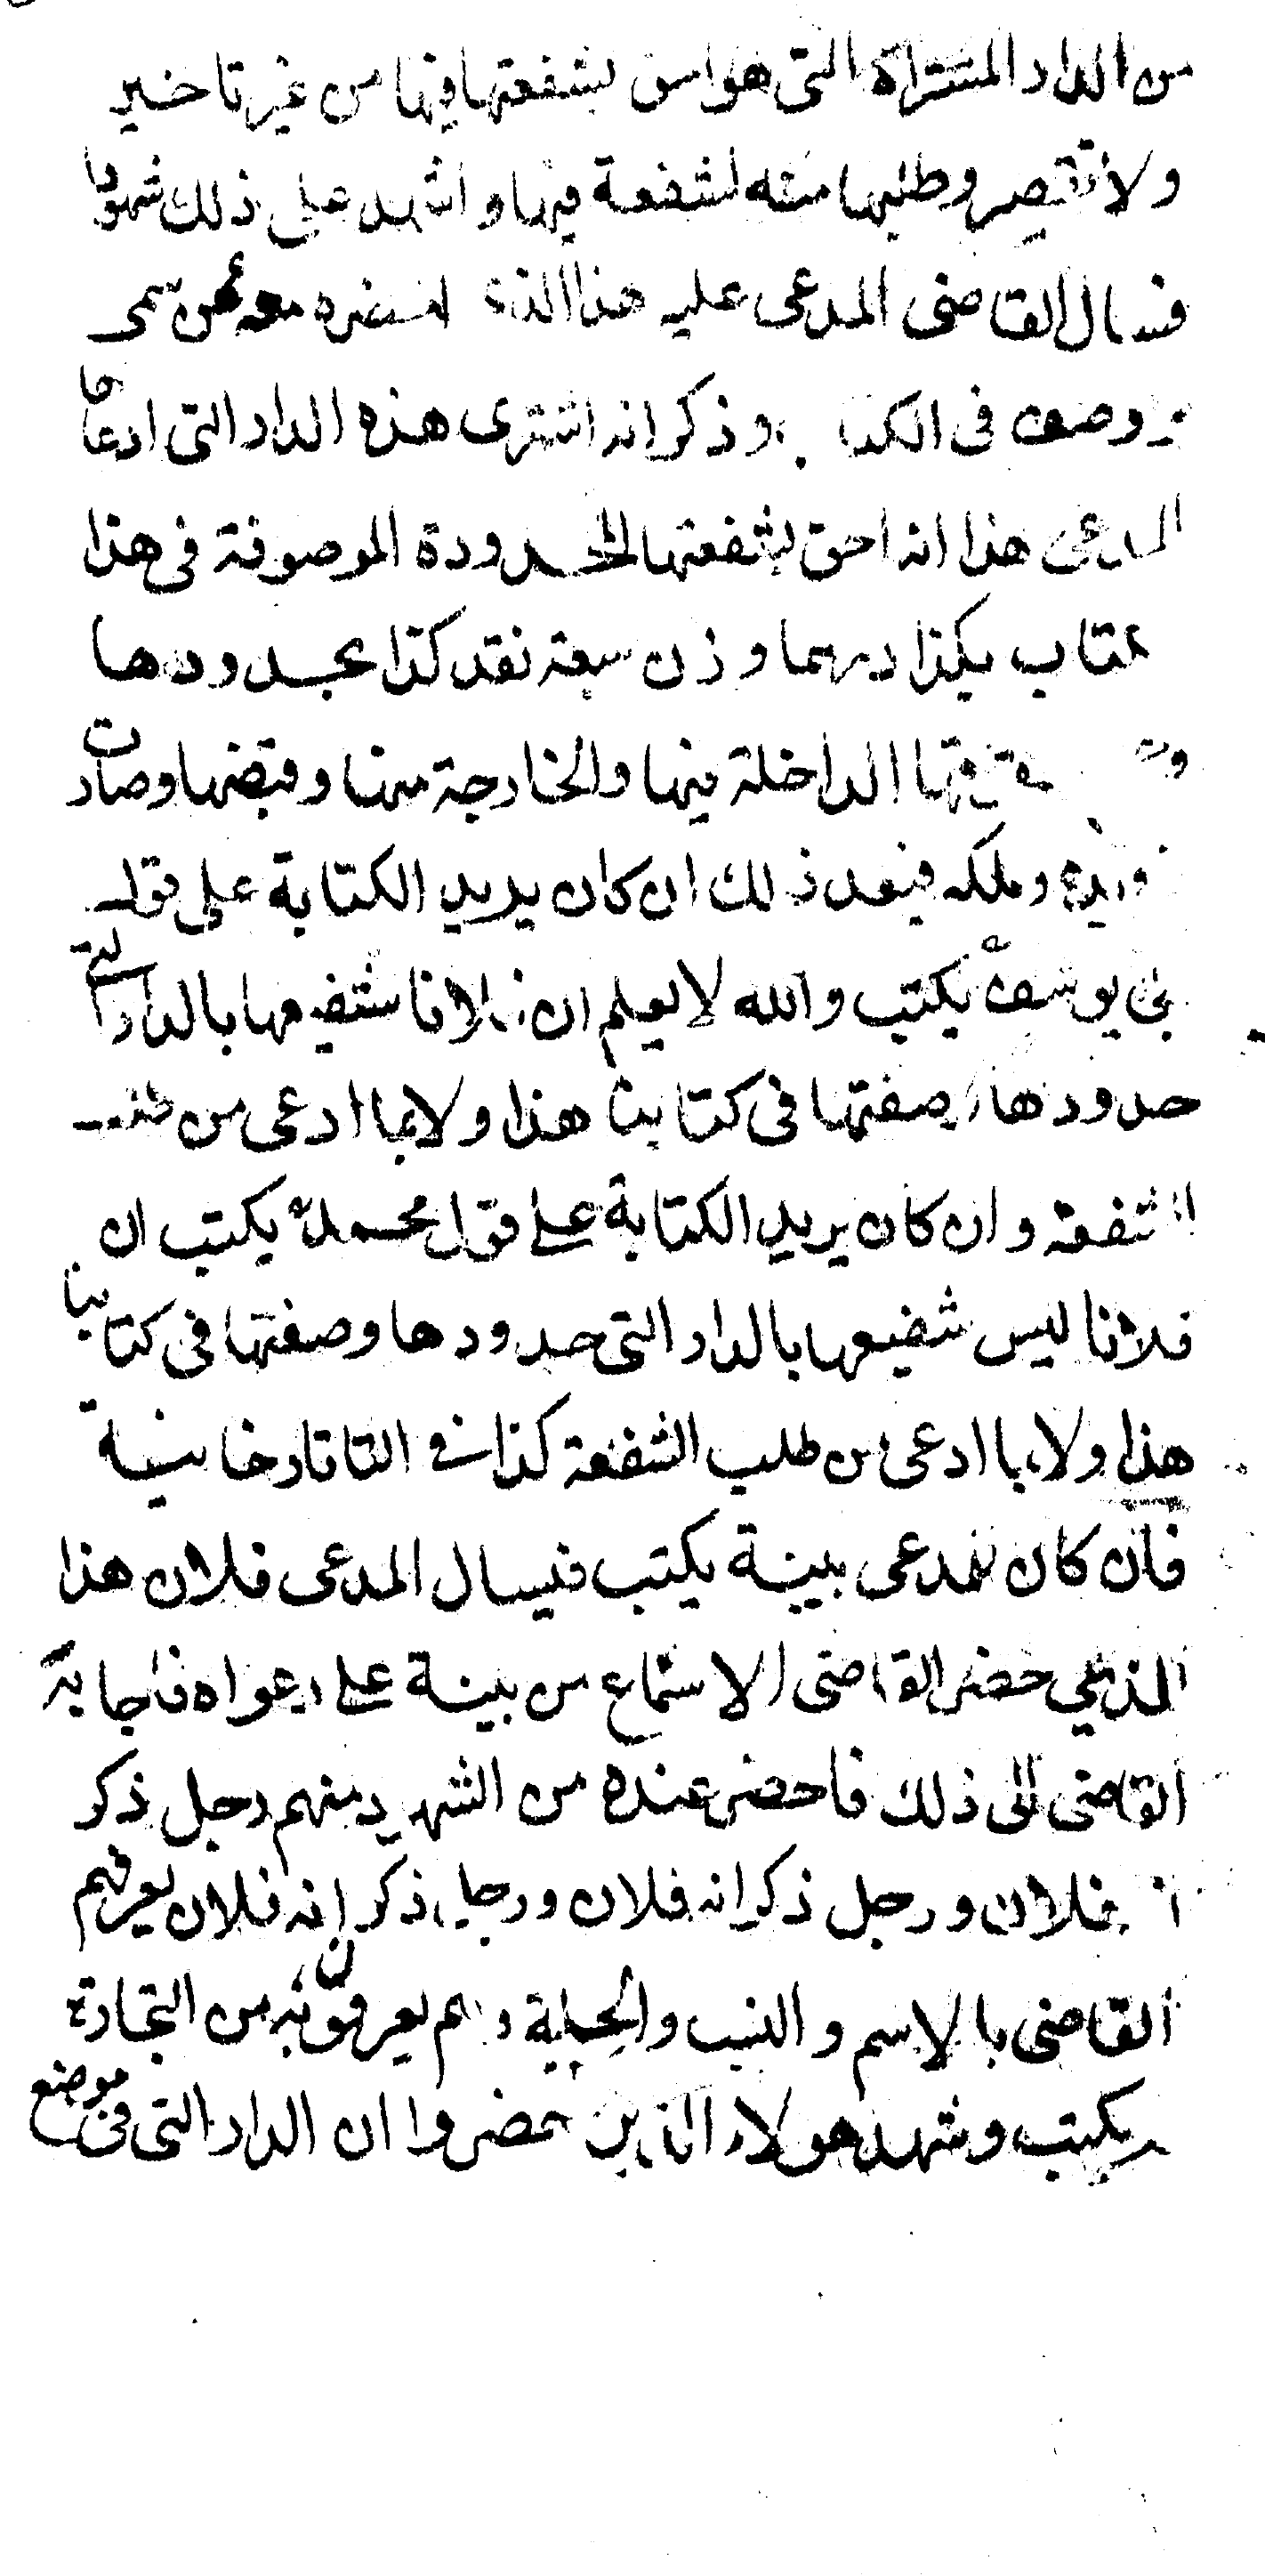 من الدار المشتراة التى هو احق بشفعتها فيها من غير تاخير
ولا تقصير وطلبها منه لشفعة فيها واشهد على ذلك شهودا
فسال القاضى المدعى عليه هذا الذى احضره معه عمن سمى
ووصف فى الكتاب وذكر انه اشترى هذه الدار التى ادعاها
المدعى هذا انه احق بشفعتها المحدودة الموصوفة فى هذا
كتاب بكذا درهما وزن سبعة نقد كذا بحدودها
الداخلة فيها والخارجة منها وقبضها وصارت
يده وملكه فبعد ذلك ان كان يريد الكتابة على قول
بى يوسف يكتب والله لا يعلم ان فلانا شفيعها بالدار التى
حدودها وصفتها فى كتابنا هذا ولا بما ادعى من طلب
الشفعة وان كان يريد الكتابة على قول محمد يكتب ان
فلانا ليس شفيعها بالدار التى حدودها وصفتها فى كتابنا
هذا ولا بما ادعى من طلب الشفعة كذا فى التاتارخانية
فان كان للمدعى ببينة يكتب فيسال المدعى فلان هذا
الذى حضر القاضى الاستماع من بينة على دعواه فاجابه
القاضى الى ذلك فاحضر عنده من الشهود منهم رجل ذكر
انه فلان ورجل ذكر انه فلان ورجل ذكر انه فلان يعرفهم
القاضى بالاسم والنسب والحلية وهم يعرفونه من التجارة
يكتب وشهد هولاء الذين حضروا ان الدار التى فى موضع